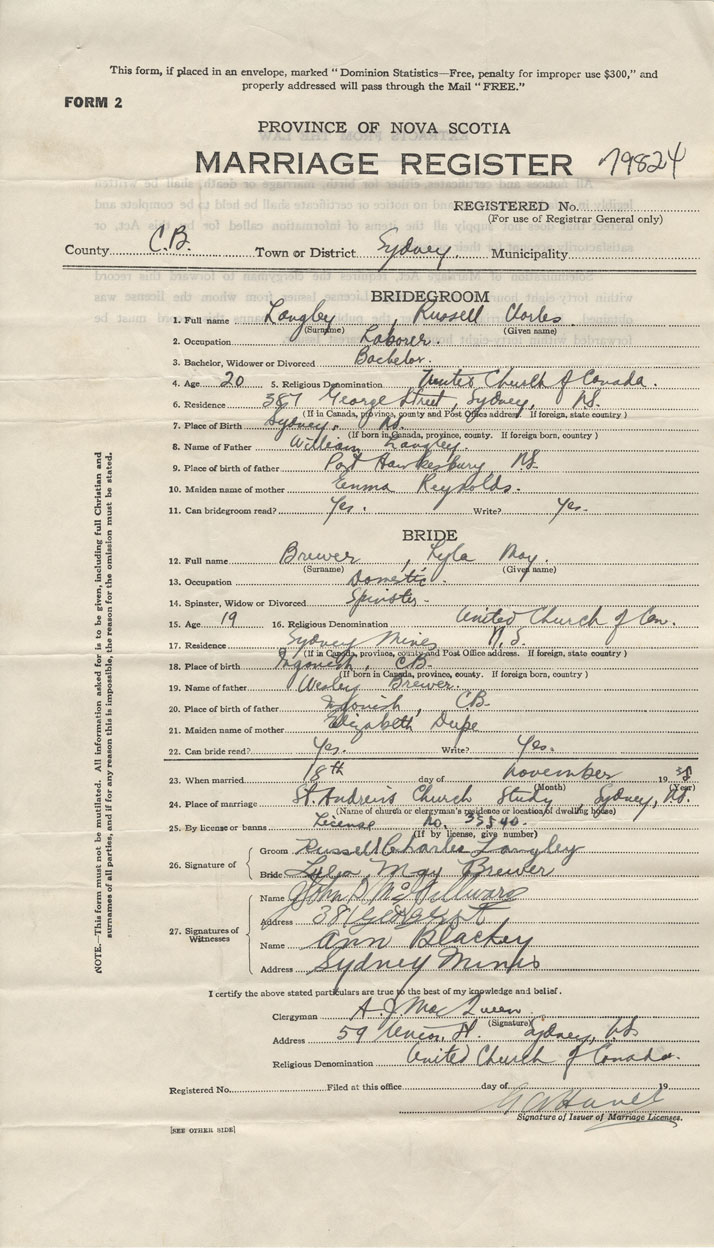 This form, if placed in an envelope, marked "Dominion Statistics—Free, penalty for improper use $300," and
properly addressed will pass through the Mail "FREE."
FORM 2
PROVINCE OF NOVA SCOTIA
MARRIAGE REGISTER 79824
REGISTERED No.
(For use of Registrar General only)
County C.B. Town or District Sydney. Municipality
BRIDEGROOM
1. Full name Langley, Russell Charles
(Surname) (Given name)
2. Occupation Laborer.
3. Bachelor, Widower or Divorced Bachelor.
4. Age 20 5. Religious Denomination United Church of Canada.
6. Residence 387 George Street, Sydney, N.S.
(If in Canada, province, county and Post Office address. If foreign, state country)
7. Place of Birth Sydney, N.S.
(If born in Canada, province, county. If foreign born, country)
8. Name of Father William Langley.
9. Place of birth of father Port Hawkesbury N.S.
10. Maiden name of mother Emma Reynolds.
11. Can bridegroom read? Yes. Write? Yes.
BRIDE
12. Full name Brewer, Lyla May.
(Surname) (Given name)
13. Occupation Domestic.
14. Spinster, Widow or Divorced Spinster.
15. Age 19 16. Religious Denomination United Church of Can.
17. Residence Sydney Mines N.S.
(If in Canada, province, county and Post Office address. If foreign, state country)
18. Place of birth Ingonish, C.B.
(If born in Canada, province, county. If foreign born, country)
19. Name of father Wesley Brewer.
20. Place of birth of father Ingonish, C.B.
21. Maiden name of mother Elizabeth Dupe
22. Can bride read? Yes. Write? Yes.
23. When married 18th day of November 19
(Month) (Year)
24. Place of marriage St. Andrew's Church Study, Sydney, N.S.
(Name of church or clergyman's residence or location of dwelling house)
25. By license or banns License No. 35540.
(If by license, give number)
26. Signature of
Groom Russell Charles Langley
Bride Lyla May Brewer
27. Signatures of Witnesses
Name John D.
Address 387 George St
Name Ann Blackey
Address Sydney Mines
I certify the above stated particulars are true to the best of my knowledge and belief.
Clergyman A. J. MacQueen
(Signature)
Address 59 Union St. Sydney, N.S.
Religious Denomination United Church of Canada.
Registered No. Filed at this office day of 19
Signature of Issuer of Marriage Licenses.
[SEE OTHER SIDE]
NOTE.—This form must not be mutilated. All information asked for is to be given, including full Christian and
surnames of all parties, and if for any reason this is impossible, the reason for the omission must be stated.